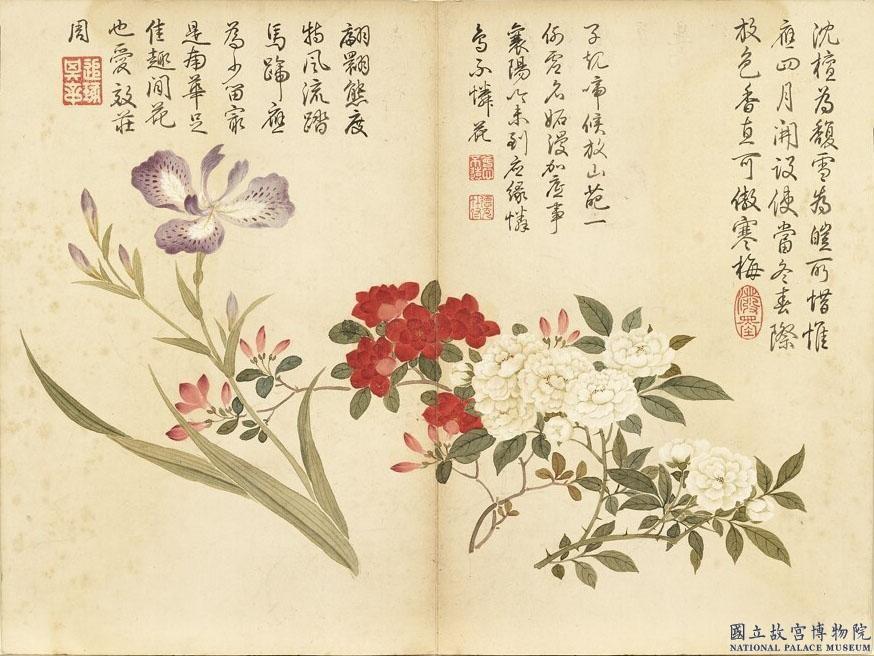 沈檀為馥雪為皚所惜惟
應四月開設使當冬春際
放色香直可傲寒梅
子規啼候放山葩一
例虛名妬漫加底事
襄陽吟未到應緣憐
鳥不憐花
翩翾態度
特風流踏
馬蹄應
為少留最
是南華足
佳趣閒花
也愛效莊
周
國立故宮博物院
NATIONAL PALACE MUSEUM